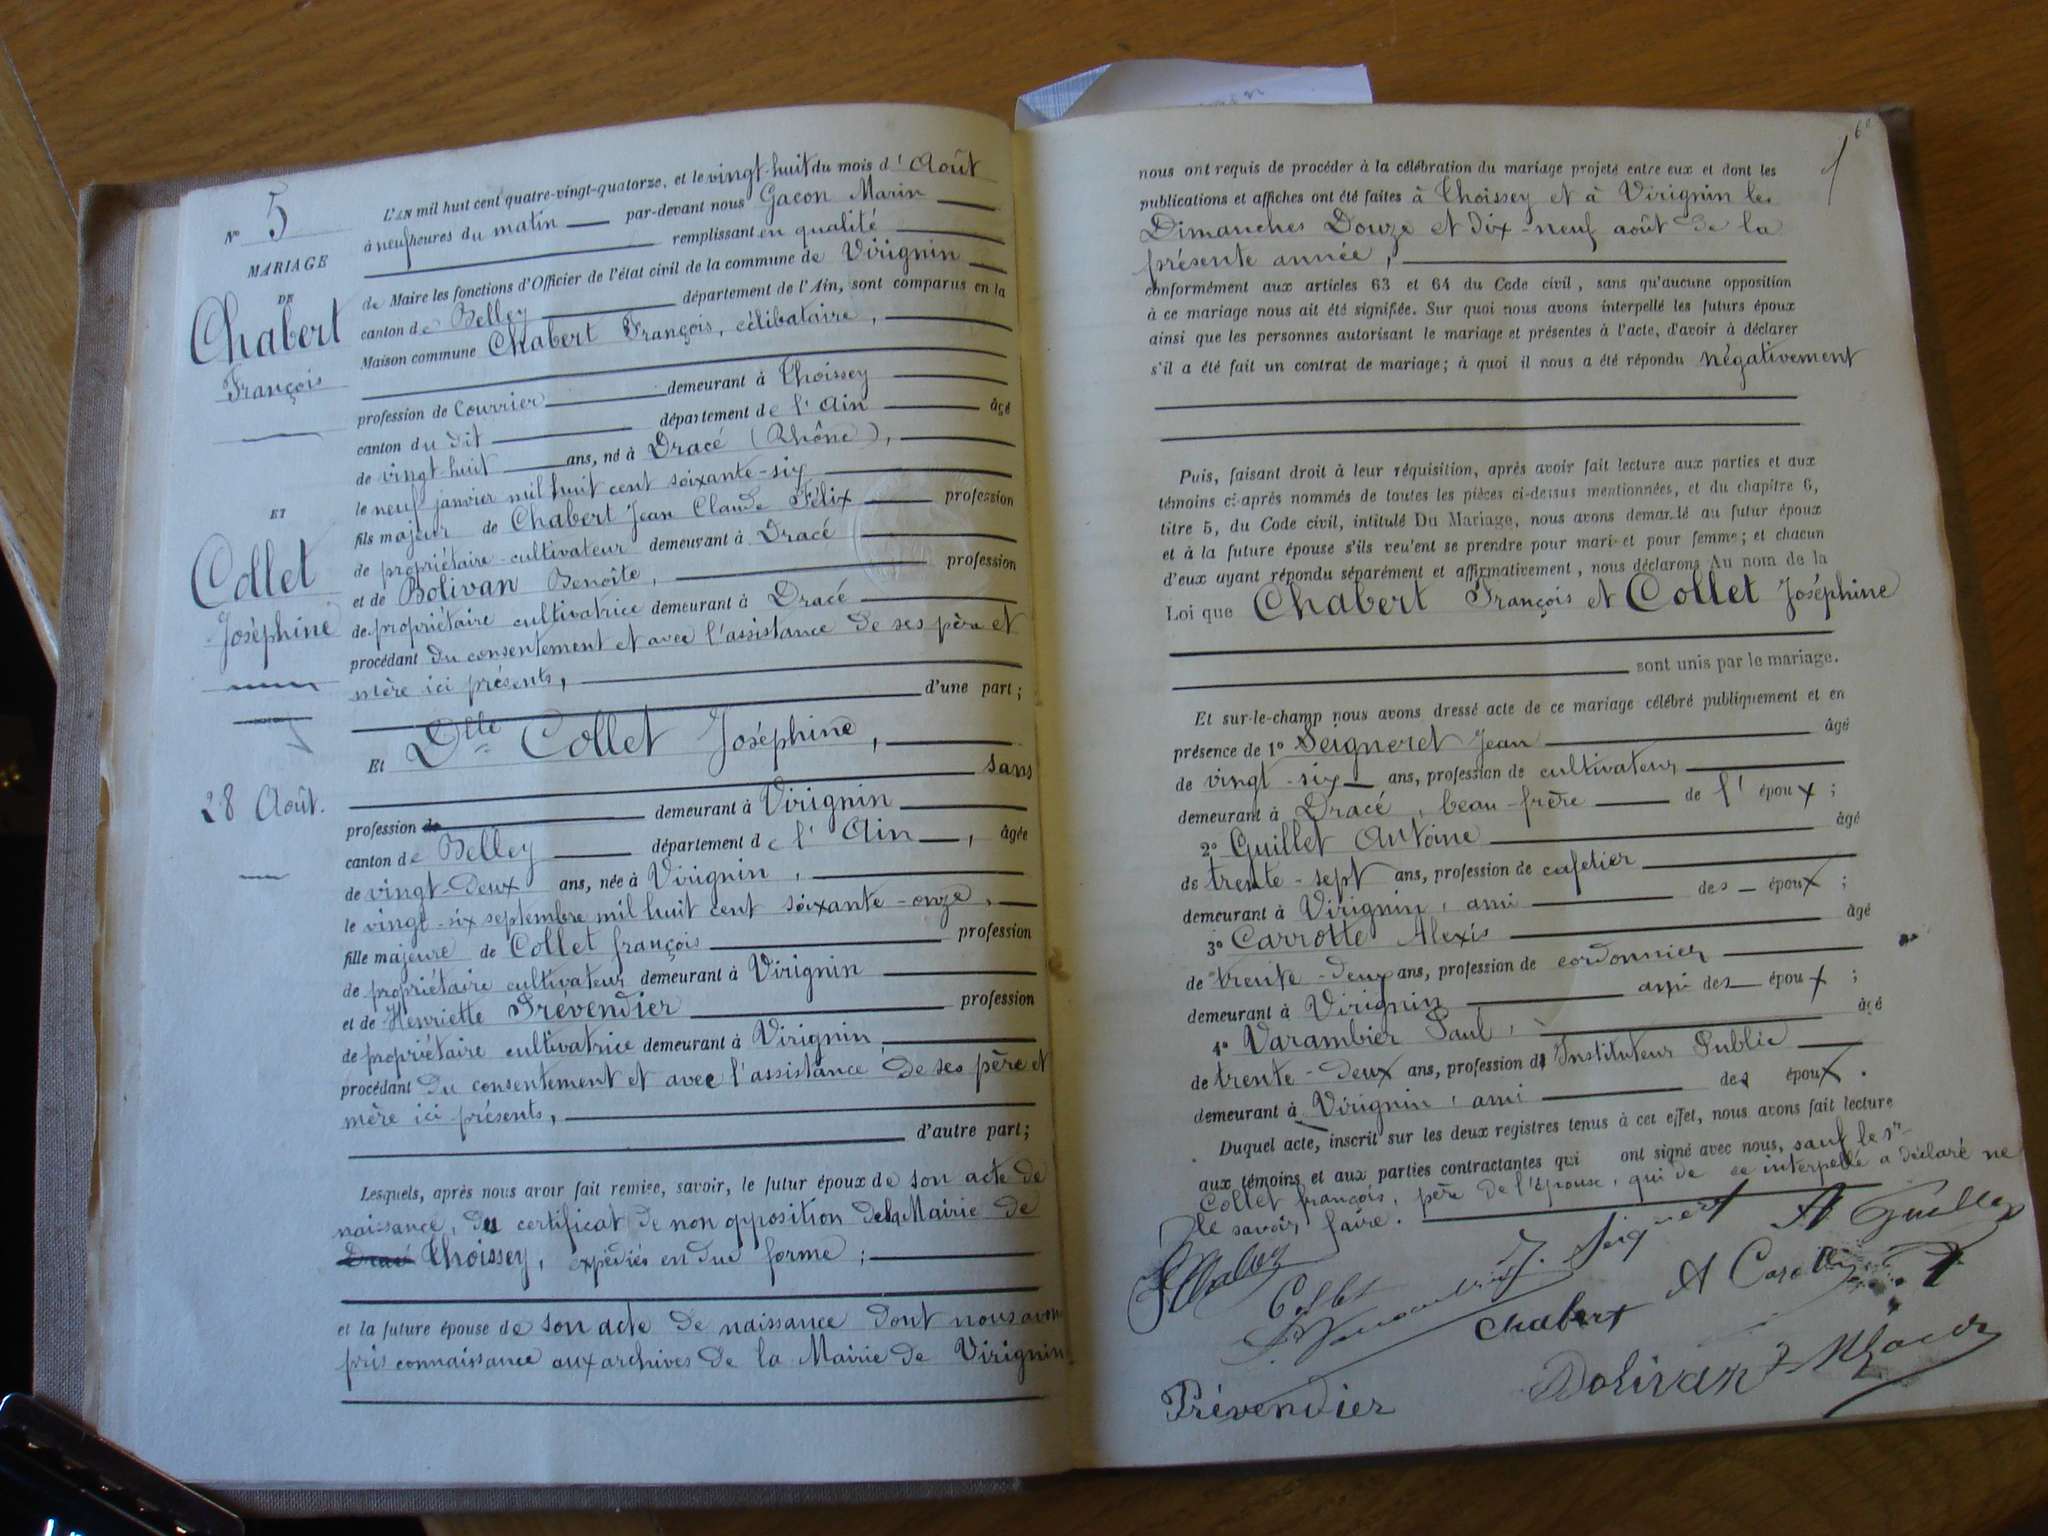 N° 5
MARIAGE
DE
Chabert
François
ET
Collet
Joséphine
28 Août.
L'AN mil huit cent quatre-vingt-quatorze, et le vingt-huit du mois d'Août
à neuf heures du matin par-devant nous Gacon Marin
remplissant en qualité
de Maire les fonctions d'Officier de l'état civil de la commune de Virignin
canton de Belley département de l'Ain, sont comparus en la
Maison commune Chabert François, célibataire,
profession de Courrier demeurant à Thoissey
canton du dit département de l'Ain âgé
de vingt-huit ans, né à Dracé (Rhône),
le neuf janvier mil huit cent soixante-six
fils majeur de Chabert Jean Claude Félix profession
de propriétaire-cultivateur demeurant à Dracé
et de Bolivan Benoîte, profession
de propriétaire cultivatrice demeurant à Dracé
procédant du consentement et avec l'assistance de ses père et
mère ici présents,
d'une part;
Et Dlle Collet Joséphine,
sans
profession de demeurant à Virignin
canton de Belley département de l'Ain, âgée
de vingt-deux ans, née à Virignin,
le vingt-six septembre mil huit cent soixante-onze,
fille majeure de Collet françois profession
de propriétaire cultivateur demeurant à Virignin
et de Henriette Prévendier profession
de propriétaire cultivatrice demeurant à Virignin
procédant du consentement et avec l'assistance de ses père et
mère ici présents,
d'autre part;
Lesquels, après nous avoir fait remise, savoir, le futur époux de son acte de
naissance, du certificat de non opposition de la Mairie de
Dracé Thoissey, expédiés en due forme;
et la future épouse de son acte de naissance dont nous avons
pris connaissance aux archives de la Mairie de Virignin
nous ont requis de procéder à la célébration du mariage projeté entre eux et dont les
publications et affiches ont été faites à Thoissey et à Virignin les
Dimanches Douze et dix-neuf août de la
présente année,
conformément aux articles 63 et 64 du Code civil, sans qu'aucune opposition
à ce mariage nous ait été signifiée. Sur quoi nous avons interpellé les futurs époux
ainsi que les personnes autorisant le mariage et présentes à l'acte, d'avoir à déclarer
s'il a été fait un contrat de mariage; à quoi il nous a été répondu négativement
Puis, faisant droit à leur réquisition, après avoir fait lecture aux parties et aux
témoins ci-après nommés de toutes les pièces ci-dessus mentionnées, et du chapitre 6,
titre 5, du Code civil, intitulé Du Mariage, nous avons demandé au futur époux
et à la future épouse s'ils veulent se prendre pour mari et pour femme; et chacun
d'eux ayant répondu séparément et affirmativement, nous déclarons Au nom de la
Loi que Chabert François et Collet Joséphine
sont unis par le mariage.
Et sur-le-champ nous avons dressé acte de ce mariage célébré publiquement et en
présence de 1° Seigneret Jean âgé
de vingt-six ans, profession de cultivateur
demeurant à Dracé, beau-frère de l'époux;
2° Guillet Antoine âgé
de trente-sept ans, profession de cafetier
demeurant à Virignin, ami des époux;
3° Carrotte Alexis âgé
de trente-deux ans, profession de cordonnier
demeurant à Virignin ami des époux;
4° Varambier Paul, âgé
de trente-deux ans, profession de Instituteur Public
demeurant à Virignin, ami des époux.
Duquel acte, inscrit sur les deux registres tenus à cet effet, nous avons fait lecture
aux témoins et aux parties contractantes qui ont signé avec nous, sauf le Sr
Collet françois, père de l'épouse, qui de ce interpellé a déclaré ne
le savoir faire.
J. Seigneret
Collet
Chabert
Prévendier
Bolivan